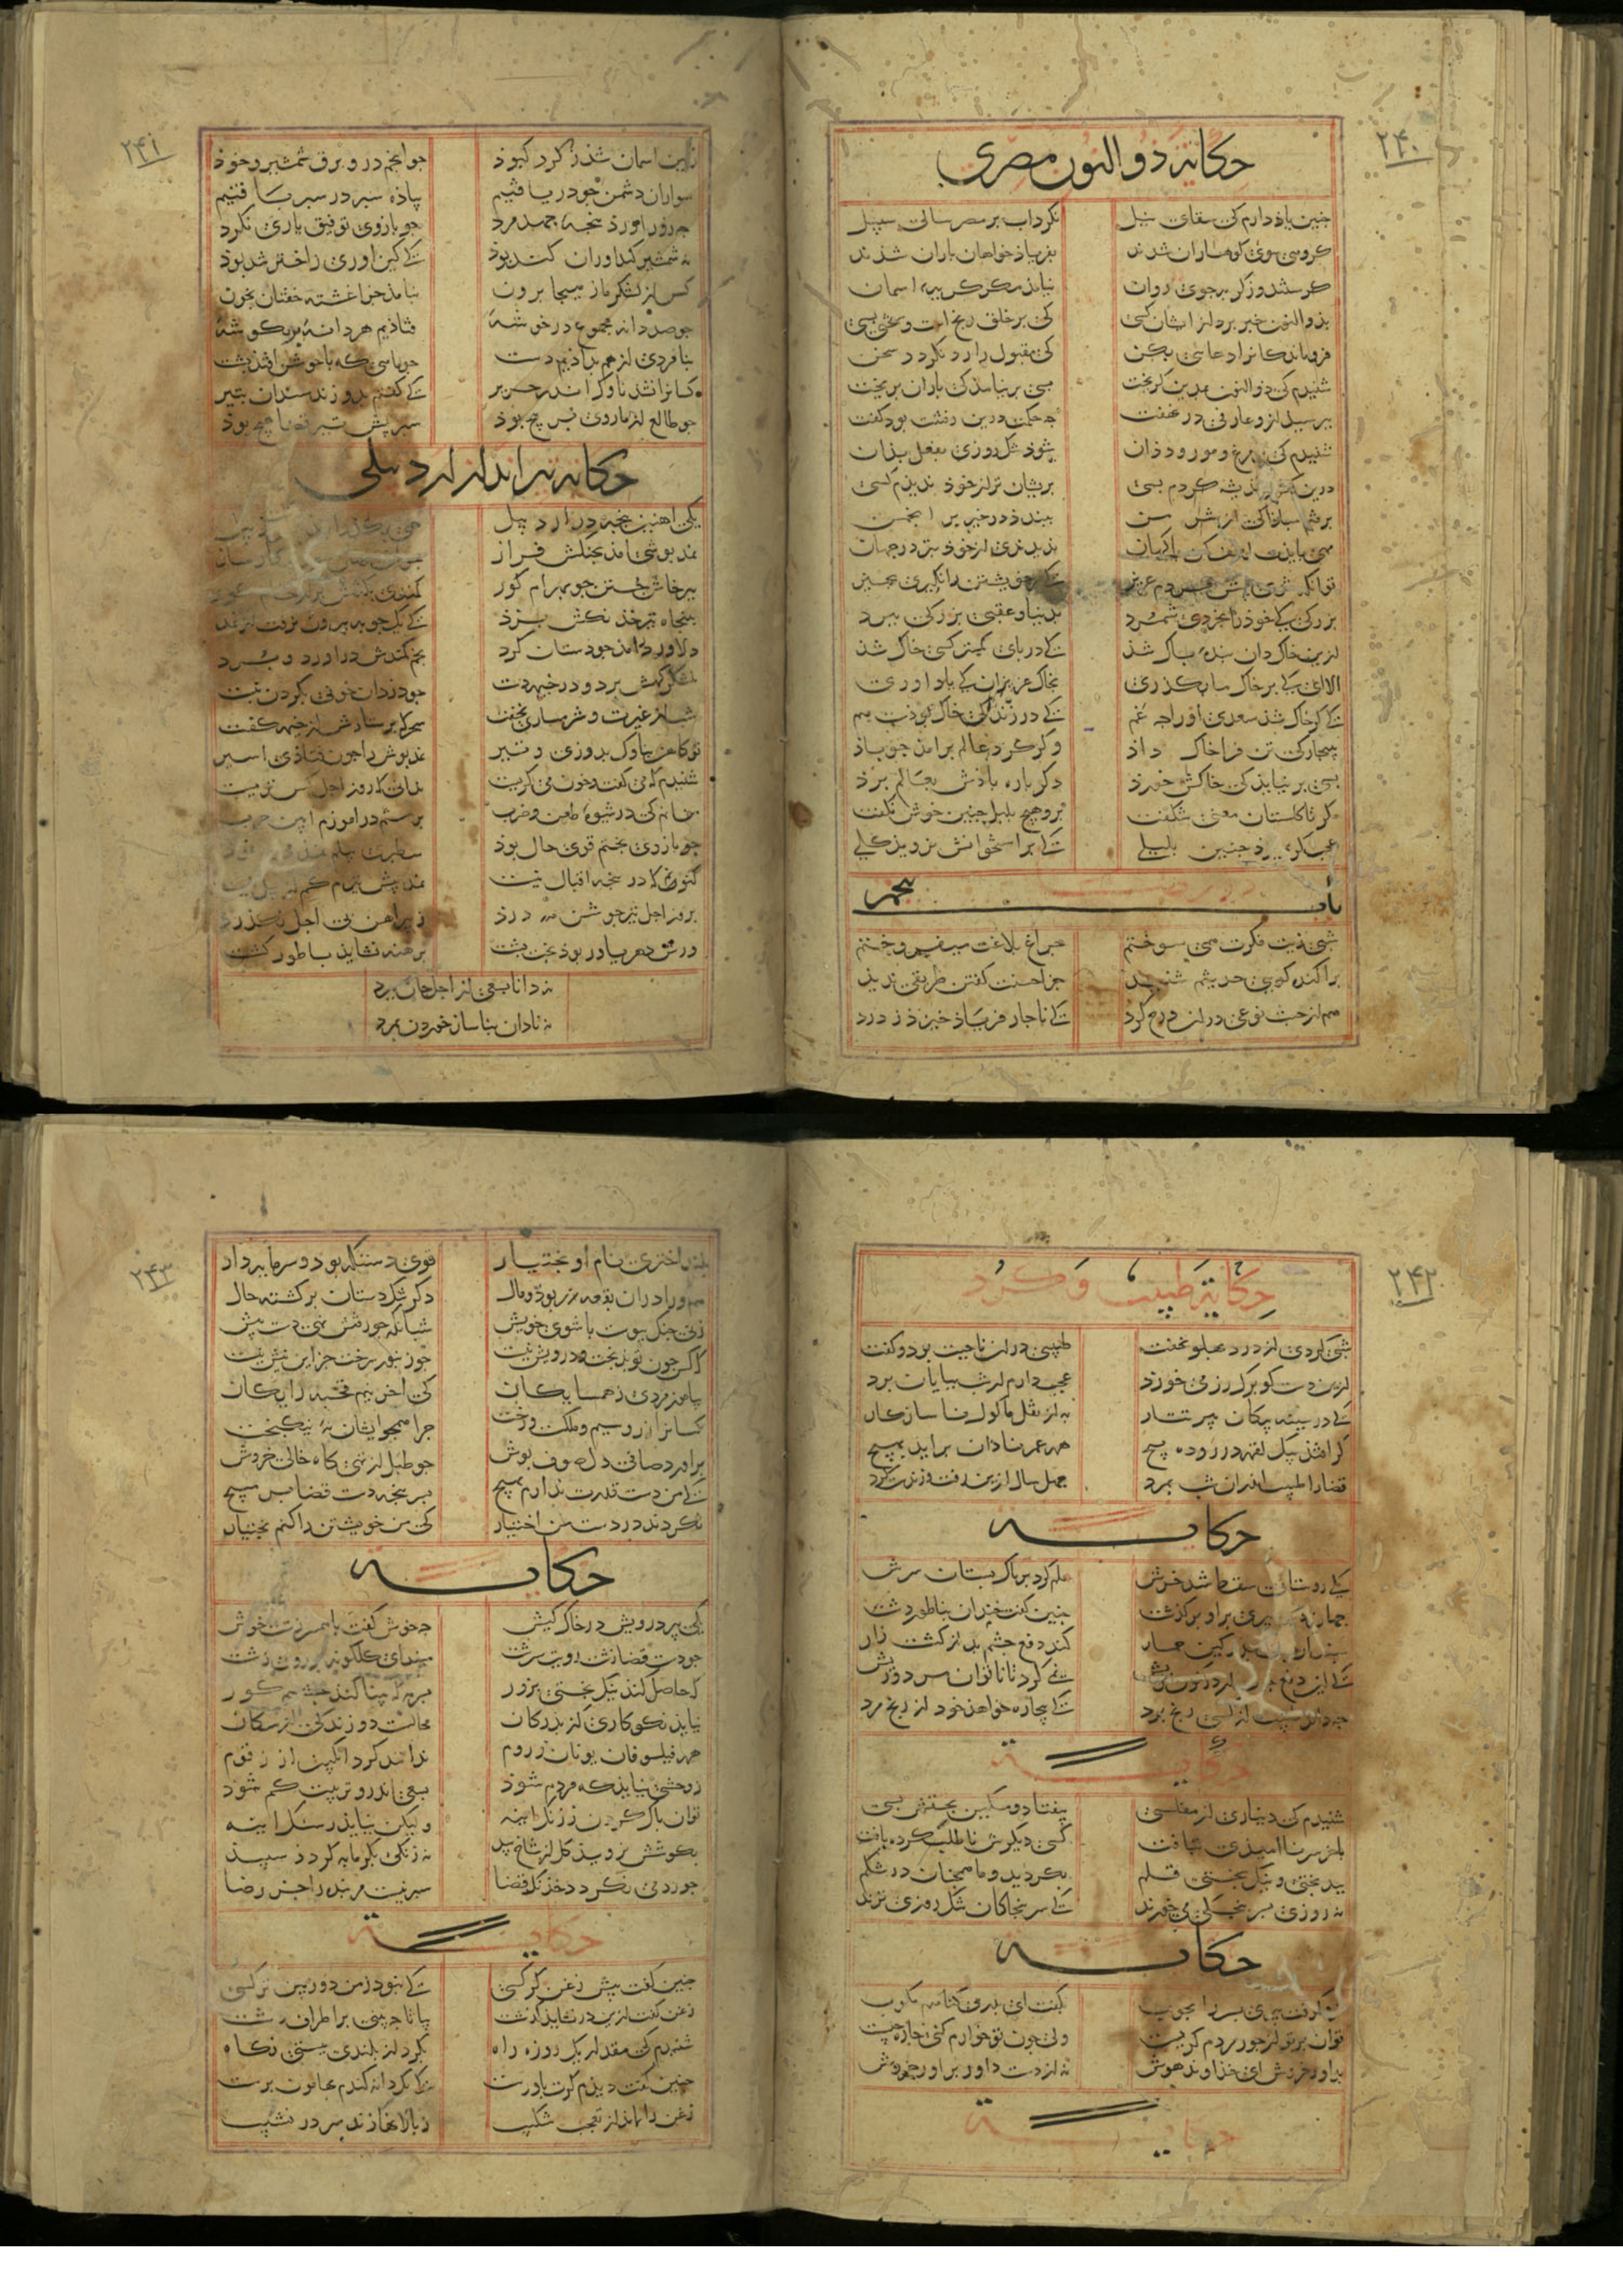 ۲۴۰
حکایة ذو النون مصری
جنین یاذ دارم کی سقای نیل نکرد اب بر مصر سالی سبیل
کروهی سوی کوهساران شدند بفریاذ خواهان باران شذند
کرستند وز کریه جوی روان نیامذ مکر کریه اسمان
بذو النون خبر برد از ایشان کسی کی بر خلق رنج است و سختی بسی
فروماندکانرا دعایی بکن کی مقبول را رد نکردد سخن
شنیدم کی ذو النون بمدین کریخت بسی بر نیامذ کی باران بریخت
ببرسید ازو عارفی در نهفت جه حکمت درین رفتنت بود کفت
شنیدم کی مرغ و مور و ددان شوذ تنک روزی بفعل بذان
درین کشور اندیشه کردم بسی بریشان تر از خوذ ندیذم کسی
برفتم مباذا کی از شر من ببندذ در خیر بر انجمن
بهی بایذت لطف کن کان بهان ندیدندی از خوذ بتر در جهان
تو انکه شوی بیش مردم عزیز کی مر خویشتن را نکیری بجیز
بزرکی کی خوذ را بخردی شمرد بدنیا و عقبی بزرکی ببرد
ازین خاکدان بنده باک شذ کی در بای کمتر کسی خاک شذ
الا ای کی بر خاک ما بکذری بخاک عزیزان کی یاد اوری
کی کر خاک شذ سعدی اورا جه غم کی در زندکی خاک بوذست هم
ببیجارکی تن فرا خاک داذ وکر کرد عالم برامذ جو باذ
بسی بر نیایذ کی خاکش خورذ دکر باره باذش بعالم برذ
مکر تا کلستان معنی شکفت برو هیج بلبل جنین خوش نکفت
عجب کر بمیرذ جنین بلبلی کی بر استخوانش نرویذ کلی
باب بنجم
شبی زیت فکرت همی سوختم جراغ بلاغت می افروختم
براکنده کویی حدیثم شنید جز احسنت کفتن طریقی ندیذ
هم از خبث نوعی در ان درج کرد کی ناجار فریاذ خیزذ ز درد
۲۴۱
زمین اسمان شذ ز کرد کبوذ جو انجم درو برق شمشیر و خوذ
سواران دشمن جو دریافتیم بیاذه سبر در سبر بافتیم
جه زور اورذ بنجه جهد مرد جو بازوی توفیق یاری نکرد
نه شمشیر کنداوران کند بوذ کی کین اوری ز اختر تند بوذ
کس از لشکر ما ز هیجا برون نیامذ جز اغشته خفتان بخون
جو صد دانه مجموع در خوشه فتاذیم هر دانه در کوشه
بنامردی از هم بداذیم دست جو ماهی که با جوشن افتذ بشست
کسانرا نشذ ناوک اندر حریر کی کفتم بدوزند سندان بتیر
جو طالع ز ما روی بر بیج بوذ سبر بیش تیر قضا هیج بوذ
حکایة تیر انداز اردبیلی
یکی اهنین بنجه در اردبیل همی بکذرانید بیلک ز بیل
نمد بوشی امذ بجنکش فراز
ببرخاش جستن جو بهرام کور کمندی بکتفش بر از خام کور
ببنجاه تیر خدنکش بزذ کی یک جوبه بیرون نرفت از نمد
دلاور درامذ جو دستان کرد بخم کمندش دراورد و ببرد
بلشکرکهش برد و در خیمه دست جو دزدان خونی بکردن ببست
شب از غیرت و شرمساری نخفت سحرکه برستارش از خیمه کفت
تو کاهن بناوک بدوزی و تیر نمد بوش را جون فتاذی اسیر
شنیدم که می کفت و خون می کریست ندانی که روز اجل کس نزیست
من انم کی در شیوه طعن و ضرب برستم در اموزم ایین حرب
جو بازوی بختم قوی حال بوذ ستبری بیلم نمذ می نموذ
کنونم کی در بنجه اقبال نیست نمد بیش تیرم کم از بیل نیست
بروز اجل تیر جوشن درذ ز بیراهن بی اجل نکذرذ
ورش دهر یاور بوذ بخت بشت برهنه نشایذ بساطور کشت
نه دانا بسعی از اجل جان ببرد
نه نادان بناساز خوردن بمرد
۲۴۲
حکایة طبیب و کرد
شبی کردی از درد بهلو نخفت طبیبی در ان ناحیت بود و کفت
ازین دست کو برک رز می خورد عجب دارم ار شب ببایان برد
کی در سینه بیکان تیر تتار به از نقل ماکول ناسازکار
کر افتذ بیک لقمه در روده بیج همه عمر نادان براید بهیج
قضا را طبیب اندر ان شب بمرد جهل سال ازین رفت و زنده است کرد
حکایة
یکی روستایی سقط شد خرش علم کرد بر تاک بستان سرش
جهاندیده بیری براو برکذشت جنین کفت خندان بناطور دشت
مبندار جان بدر کین حمار کند دفع جشم بد از کشت زار
کی این دفع جوب از سر و کون خویش نمی کرد تا ناتوان مرد و ریش
جه داند طبیب از کسی رنج برد کی بیجاره خواهد خود از رنج مرد
حکایة
شنیدم کی دیناری از مفلسی بیفتاد و مسکین بجستش بسی
باخر سر ناامیدی بتافت کسی دیکرش ناطلب کرده یافت
ببدبختی و نیک بختی قلم بکردید و ما همجنان در شکم
نه روزی بسر بنجکی می خورند کی سر بنجکان تنک روزی ترند
حکایة
فرو کوفت بیری بسر را بجوب بکفت ای بدر بی کناهم مکوب
توان بر تو از جور مردم کریست ولی جون تو جورم کنی جاره جیست
بداور خروش ای خذاوند هوش نه از دست داور براور خروش
حکایة
۲۴۳
بلند اختری نام او بختیار قوی دستکه بود و سرمایه دار
هم ورا دران بقعه زر بوذ و مال دکر تنک دستان برکشته حال
زنی جنک بیوست با شوی خویش شبانکه جو رفتش تهی دست بیش
که کس جون تو بدبخت و درویش نیست جو زنبور سرخت جز این نیش نیست
بیاموز مردی ز همسایکان کی اخر نیم قحبه رایکان
کسانرا زر و سیم و ملکست و رخت جرا همجو ایشان نه نیکبخت
براورد صافی دل صوف بوش جو طبل از تهی کاه خالی خروش
کی من دست قدرت ندارم بهیج بسر بنجه دست قضا بر مبیج
نکردند در دست من اختیار کی من خویشتن را کنم بختیار
حکایة
یکی بیر درویش در خاک کیش جه خوش کفت با همسر زشت خویش
جو دست قضا زشت رویت سرشت میندای کلکونه بر روی زشت
که حاصل کند نیک بختی بزور بسرمه که بینا کند جشم کور
نیایذ نکوکاری از بدرکان محالست دوزندکی از سکان
همه فیلسوفان یونان و روم ندانند کرد انکبین از زقوم
ز وحشی نیایذ که مردم شوذ بسعی اندرو تربیت کم شوذ
توان باک کردن ز زنک اینه ولیکن نیایذ ز سنک اینه
بکوشش نرویذ کل از شاخ بید نه زنکی بکرمابه کردذ سبیذ
جو رد می نکردد خذنک قضا سبر نیست مر بنده را جز رضا
حکایة
جنین کفت بیش زغن کرکسی کی نبود ز من دوربین تر کسی
زغن کفت ازین در نشاید کذشت بیا تا جه بینی بر اطراف دشت
شنیدم کی مقدار یک روزه راه بکرد از بلندی ببستی نکاه
جنین کفت دیذم کرت باورست کی یک دانه کندم بهامون برست
زغن را نماند از تعجب شکیب ز بالا نهاذند سر در نشیب